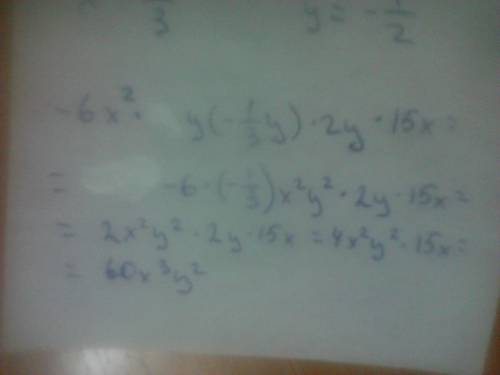 3 y = -1/2
-6x²· y(-1/3y)·2y·15x=
= -6·(-1/3)x²y²·2y·15x=
= 2x²y²·2y·15x=4x²y²·15x=
= 60x³y²